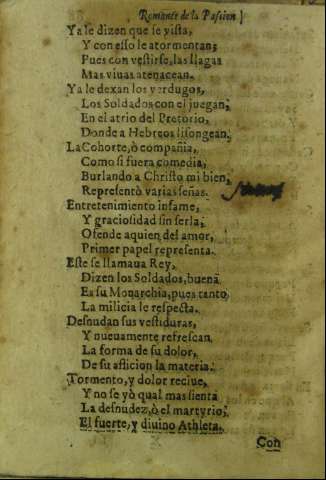 Romance de la Passion
Ya le dizen que se vista,
Y con esso le atormentan;
Pues con vestirse, las llagas
Mas viuas atenacean.
Ya le dexan los verdugos,
Los Soldados con el juegan;
En el atrio del Pretorio,
Donde a Hebreos lisongean.
La Cohorte, ò compañia,
Como si fuera comedia,
Burlando a Christo mi bien,
Representò varias señas.
Entretenimiento infame,
Y graciosidad sin serla;
Ofende aquien del amor,
Primer papel representa.
Este se llamaua Rey,
Dizen los Soldados, buena
Es su Monarchia, pues tanto
La milicia le respecta.
Desnudan sus vestiduras,
Y nueuamente refrescan
La forma de su dolor,
De su aflicion la materia.
Tormento, y dolor reciue,
Y no se yò qual mas sienta
La desnudez, ò el martyrio,
El fuerte, y diuino Athleta.
Con